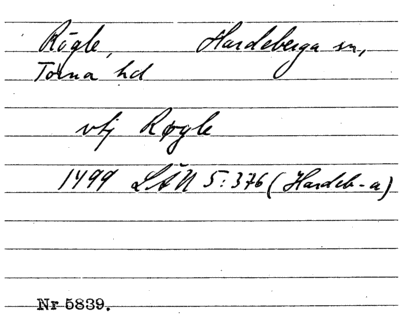 Rögle, Hardeberga sn,
Torna hd
vtj Røgle
1499 LÄU 5:376 (Hardeb-a)
Nr 5839.